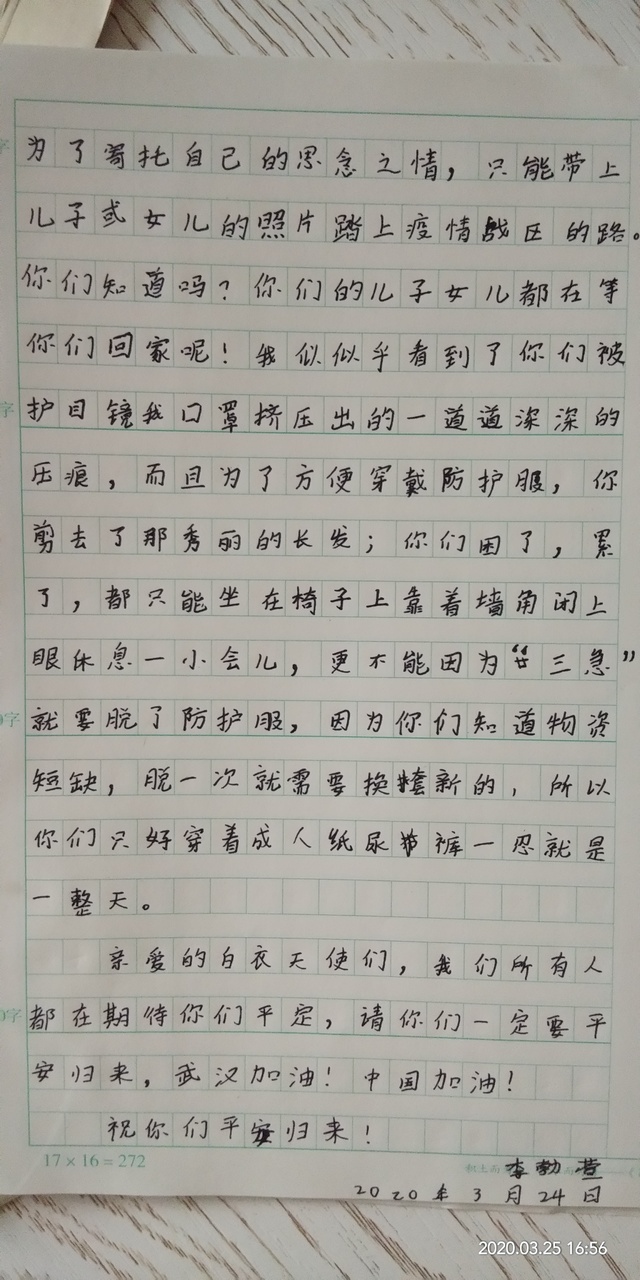 为了寄托自己的思念之情，只能带上
儿子或女儿的照片踏上疫情战区的路。
你们知道吗？你们的儿子女儿都在等
你们回家呢！我似似乎看到了你们被
护目镜我口罩挤压出的一道道深深的
压痕，而且为了方便穿戴防护服，你
剪去了那秀丽的长发；你们困了，累
了，都只能坐在椅子上靠着墙角闭上
眼休息一小会儿，更不能因为“三急”
就要脱了防护服，因为你们知道物资
短缺，脱一次就需要换套新的，所以
你们只好穿着成人纸尿裤一忍就是
一整天。
亲爱的白衣天使们，我们所有人
都在期待你们平定，请你们一定要平
安归来，武汉加油！中国加油！
祝你们平安归来！
17×16=272
李勃萱
2020年3月24日
2020.03.25 16:56